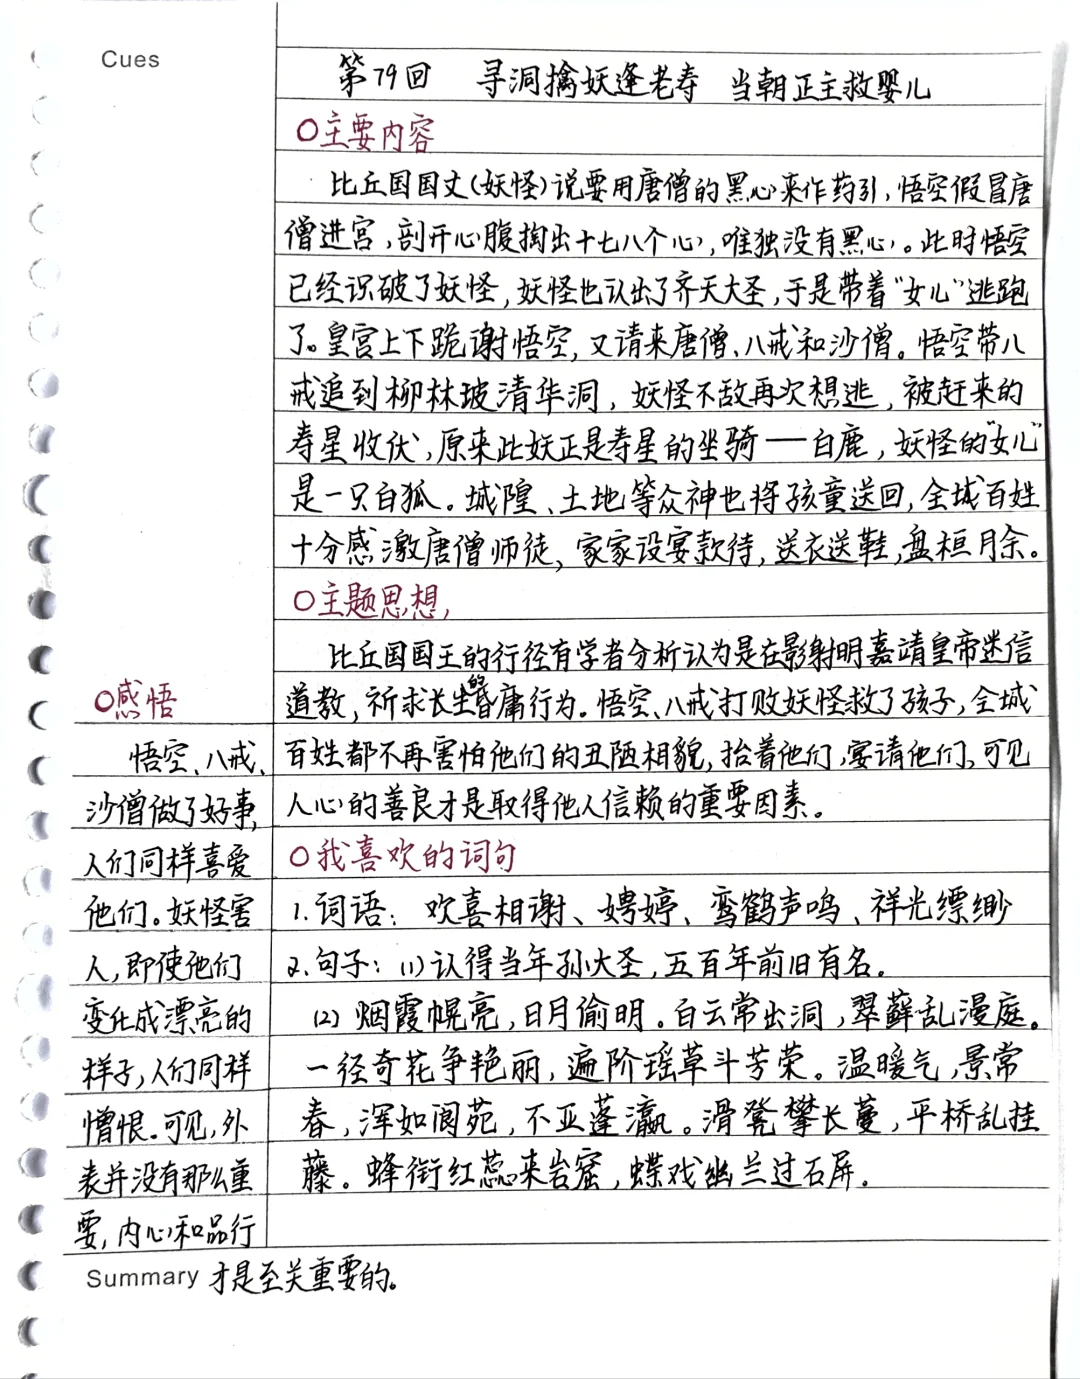 Cues
第79回 寻洞擒妖逢老寿 当朝正主救婴儿
○主要内容
比丘国国丈(妖怪)说要用唐僧的黑心来作药引,悟空假冒唐
僧进宫,剖开心腹掏出十七八个心,唯独没有黑心。此时悟空
已经识破了妖怪,妖怪也认出了齐天大圣,于是带着“女儿”逃跑
了。皇宫上下跪谢悟空,又请来唐僧、八戒和沙僧。悟空带八
戒追到柳林玻清华洞,妖怪不敌再次想逃,被赶来的
寿星收伏,原来此妖正是寿星的坐骑——白鹿,妖怪的“女儿”
是一只白狐。城隍、土地等众神也将孩童送回,全城百姓
十分感激唐僧师徒,家家设宴款待,送衣送鞋,盘桓月余。
○主题思想,
比丘国国王的行径有学者分析认为是在影射明嘉靖皇帝迷信
道教,祈求长生的昏庸行为。悟空、八戒打败妖怪救了孩子,全城
百姓都不再害怕他们的丑陋相貌,抬着他们,宴请他们,可见
人心的善良才是取得他人信赖的重要因素。
○我喜欢的词句
1.词语:欢喜相谢、娉婷、鸾鹤声鸣、祥光缥缈
2.句子:(1)认得当年孙大圣,五百年前旧有名。
(2)烟霞幌亮,日月偷明。白云常出洞,翠藓乱漫庭。
一径奇花争艳丽,遍阶瑶草斗芳荣。温暖气,景常
春,浑如阆苑,不亚蓬瀛。滑凳攀长蔓,平桥乱挂
藤。蜂衔红蕊来岩窟,蝶戏幽兰过石屏。
○感悟
悟空、八戒、
沙僧做了好事,
人们同样喜爱
他们。妖怪害
人,即使他们
变化成漂亮的
样子,人们同样
憎恨。可见,外
表并没有那么重
要,内心和品行
Summary 才是至关重要的。